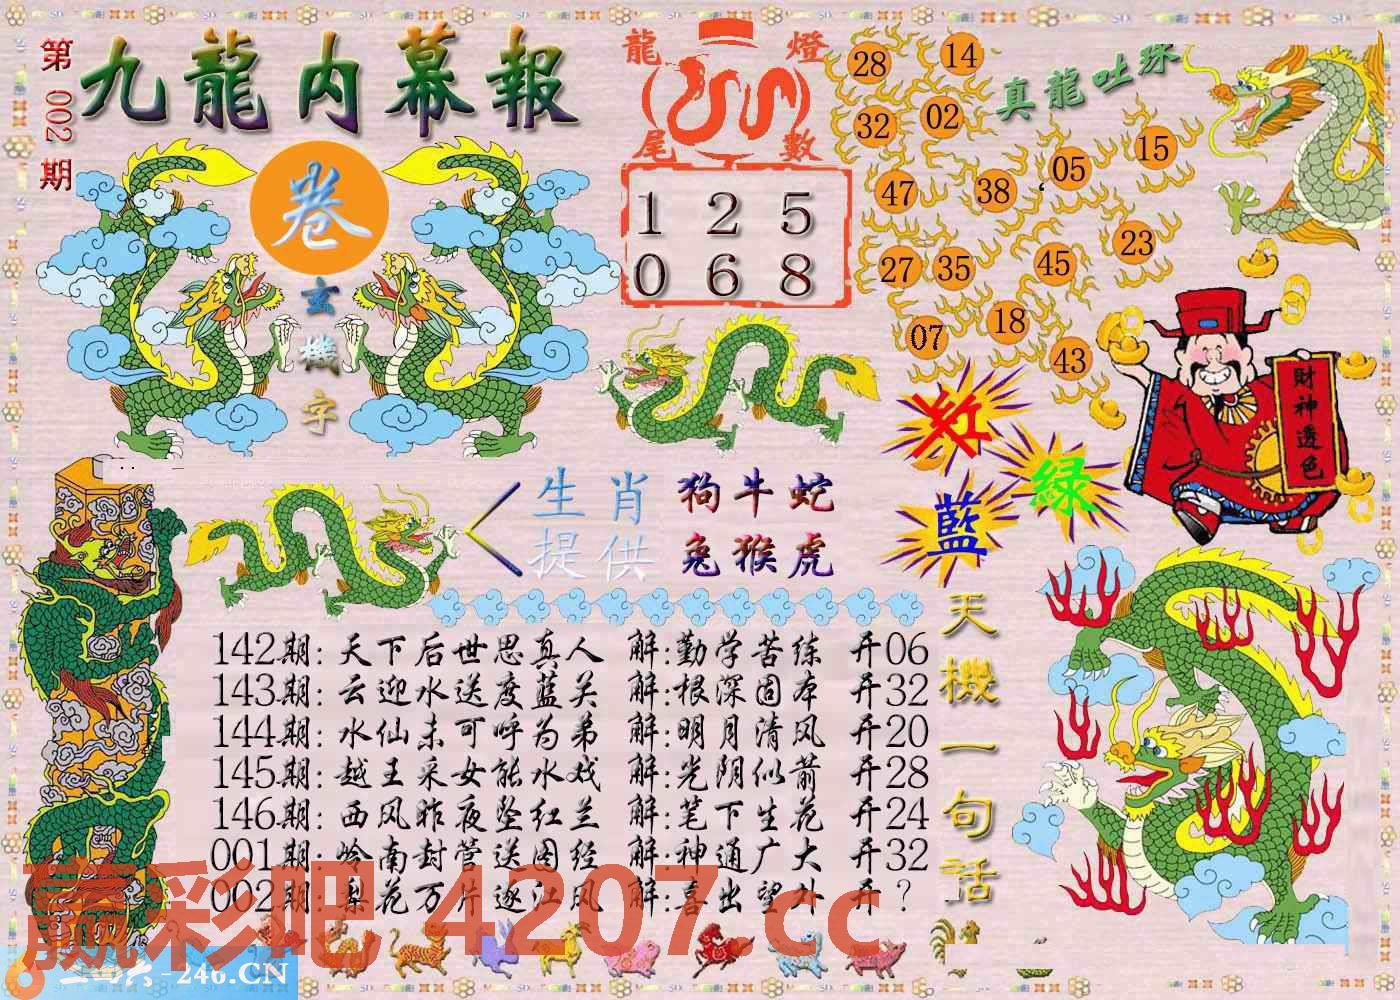 第002期
九龍内幕報
龍燈
尾數
1 2 5
0 6 8
卷
玄機字
真龍吐珠
28 14
32 02
47 38 05 15
27 35 45 23
07 18 43
財神透色
红
绿
藍
生肖 狗牛蛇
提供 兔猴虎
天機一句话
142期: 天下后世思真人 解:勤学苦练 开06
143期: 云迎水送度蓝关 解:根深固本 开32
144期: 水仙未可呼为弟 解:明月清风 开20
145期: 越王采女能水戏 解:光阴似箭 开28
146期: 西风昨夜坠红兰 解:笔下生花 开24
001期: 岭南封管送图经 解:神通广大 开32
002期: 梨花万片逐江风 解:喜出望外 开?
赢彩吧 4207.cc
二四六 -246.CN